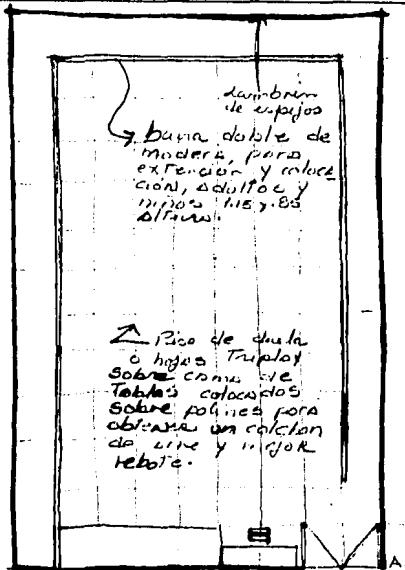 lambrin
de espejos
barra doble de
madera, para
extencion y coloca
ción, adultos y
niños 1.15 y .85
altura.
Piso de duela
ó hojas Triplay
sobre cama de
Tablas colocados
sobre polines para
obtener un colchon
de aire y mejor
rebote.
A